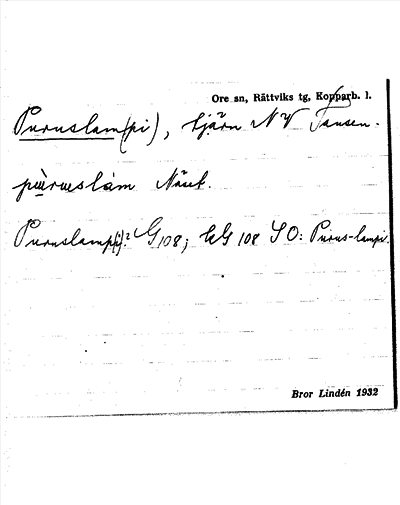 Ore sn, Rättviks tg, Kopparb. l.
Puruslam(pi), tjärn NV Tansen.
pùruslàm Näset.
Puruslamp(i)² G 108; kG 108 SO: Purus-lampi.
Bror Lindén 1932